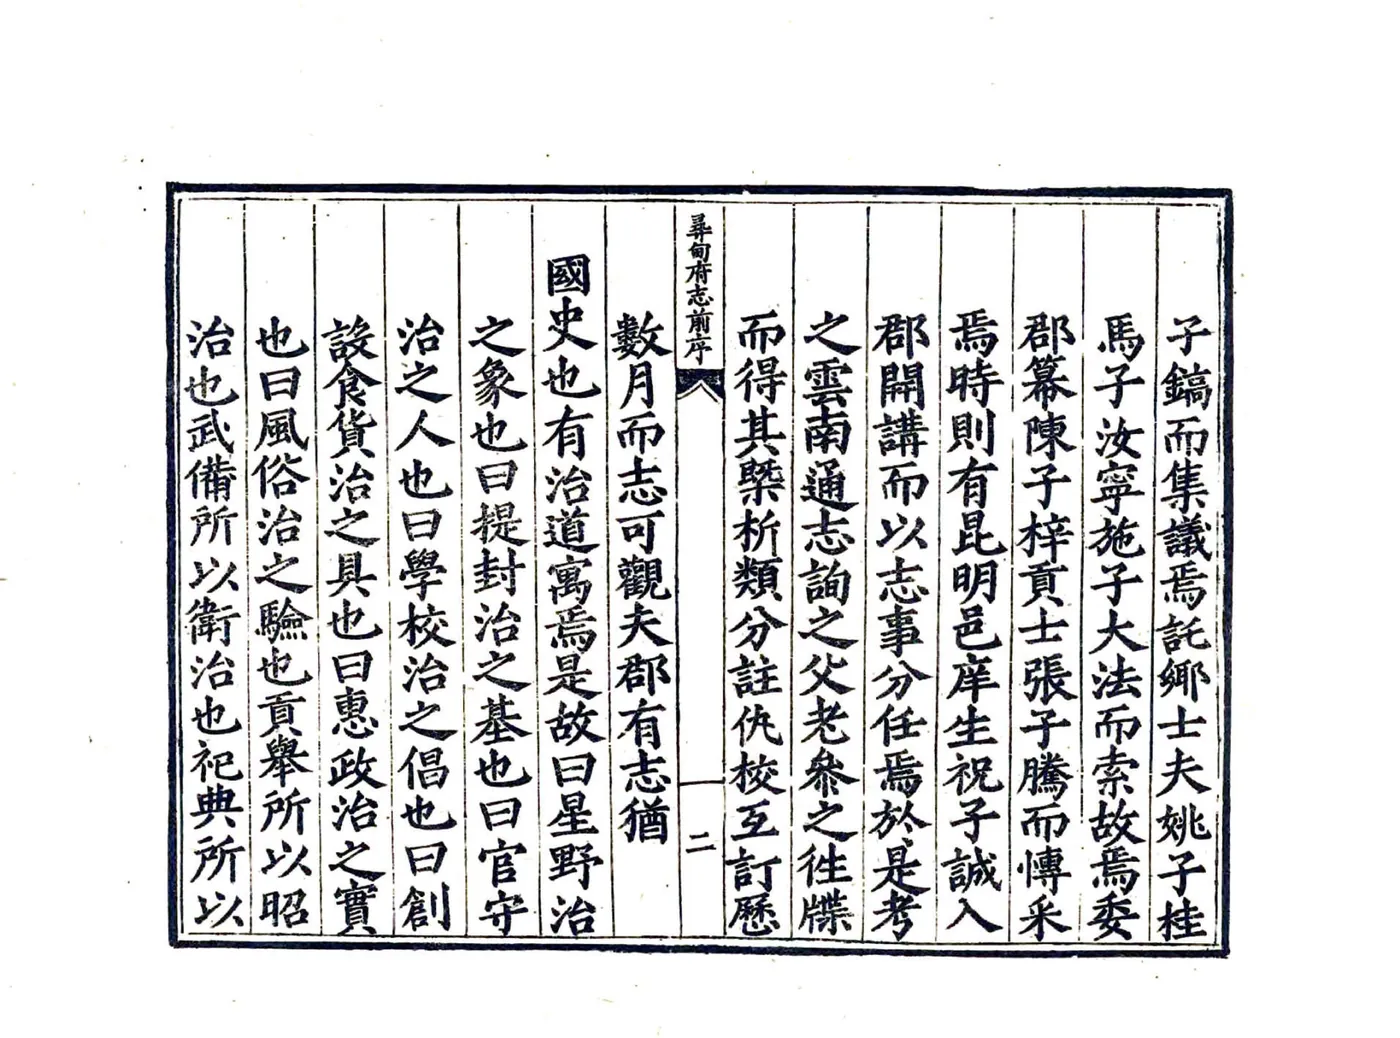 子鎬而集議焉託鄉士夫姚子桂
馬子汝寧施子大法而索故焉委
郡幕陳子梓貢士張子騰而慱采
焉時則有昆明邑庠生祝子誠入
郡開講而以志事分任焉於是考
之雲南通志詢之父老叅之徃牒
而得其槩析類分註仇校互訂歷
尋甸府志前序
二
數月而志可觀夫郡有志猶
國史也有治道寓焉是故曰星野治
之象也曰提封治之基也曰官守
治之人也曰學校治之倡也曰創
設食貨治之具也曰惠政治之實
也曰風俗治之驗也貢舉所以昭
治也武備所以衛治也祀典所以